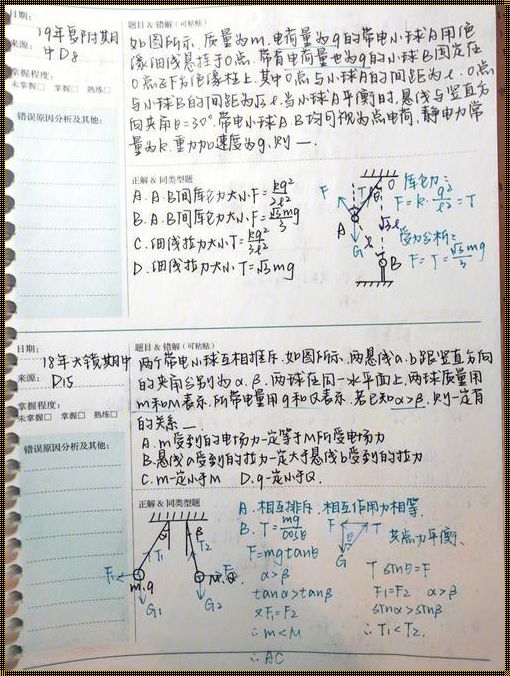 日期:
19年复附其月中D8
来源:
掌握程度:
未掌握□ 掌握□ 熟练□
错误原因分析及其他:
题目 & 错解(可粘贴)
如图所示,质量为m,电荷量为q的带电小球A用绝
缘细线悬挂于O点,带有电荷量也为q的小球B固定在
O点正下方绝缘柱上,其中O点与小球A的间距为l,O点
与小球B的间距为√3l,当小球A平衡时,悬线与竖直方
向夹角θ=30°,带电小球A、B均可视为点电荷,静电力常
量为k,重力加速度为g,则 __.
正解 & 同类型题
A. A、B间库仑力大小F=kq²/2l²
B. A、B间库仑力大小F=√3mg/3
C. 细线拉力大小T=kq²/3l²
D. 细线拉力大小T=√3mg
F T θ O
A √3l
G l
B
库仑力:
F=k·q²/l²=T
受力分析:
F=T=√3mg/3
日期:
18年大镜期中
来源: D15
掌握程度:
未掌握□ 掌握□ 熟练□
错误原因分析及其他:
题目 & 错解(可粘贴)
两个带电小球互相推斥,如图所示,两悬线a、b跟竖直方向
的夹角分别为α、β,两球在同一水平面上,两球质量用
m和M表示,所带电量用q和Q表示,若已知α>β,则一定有
的关系 __
A. m受到的电场力一定等于M所受电场力
B. 悬线a受到的拉力一定大于悬线b受到的拉力
C. m一定小于M D. q一定小于Q.
正解 & 同类型题
α β
T₁ T₂
F₁ F₂
m.q M.Q
G₁ G₂
A. 相互排斥,相互作用力相等.
B. T=mg/cosθ
F=mgtanθ
α>β
tanα>tanβ
又F₁=F₂
∴m<M
F θ T
G
共点力平衡.
T sinθ=F
F₁=F₂ α>β
sinα>sinβ
∴T₁<T₂.
∴AC